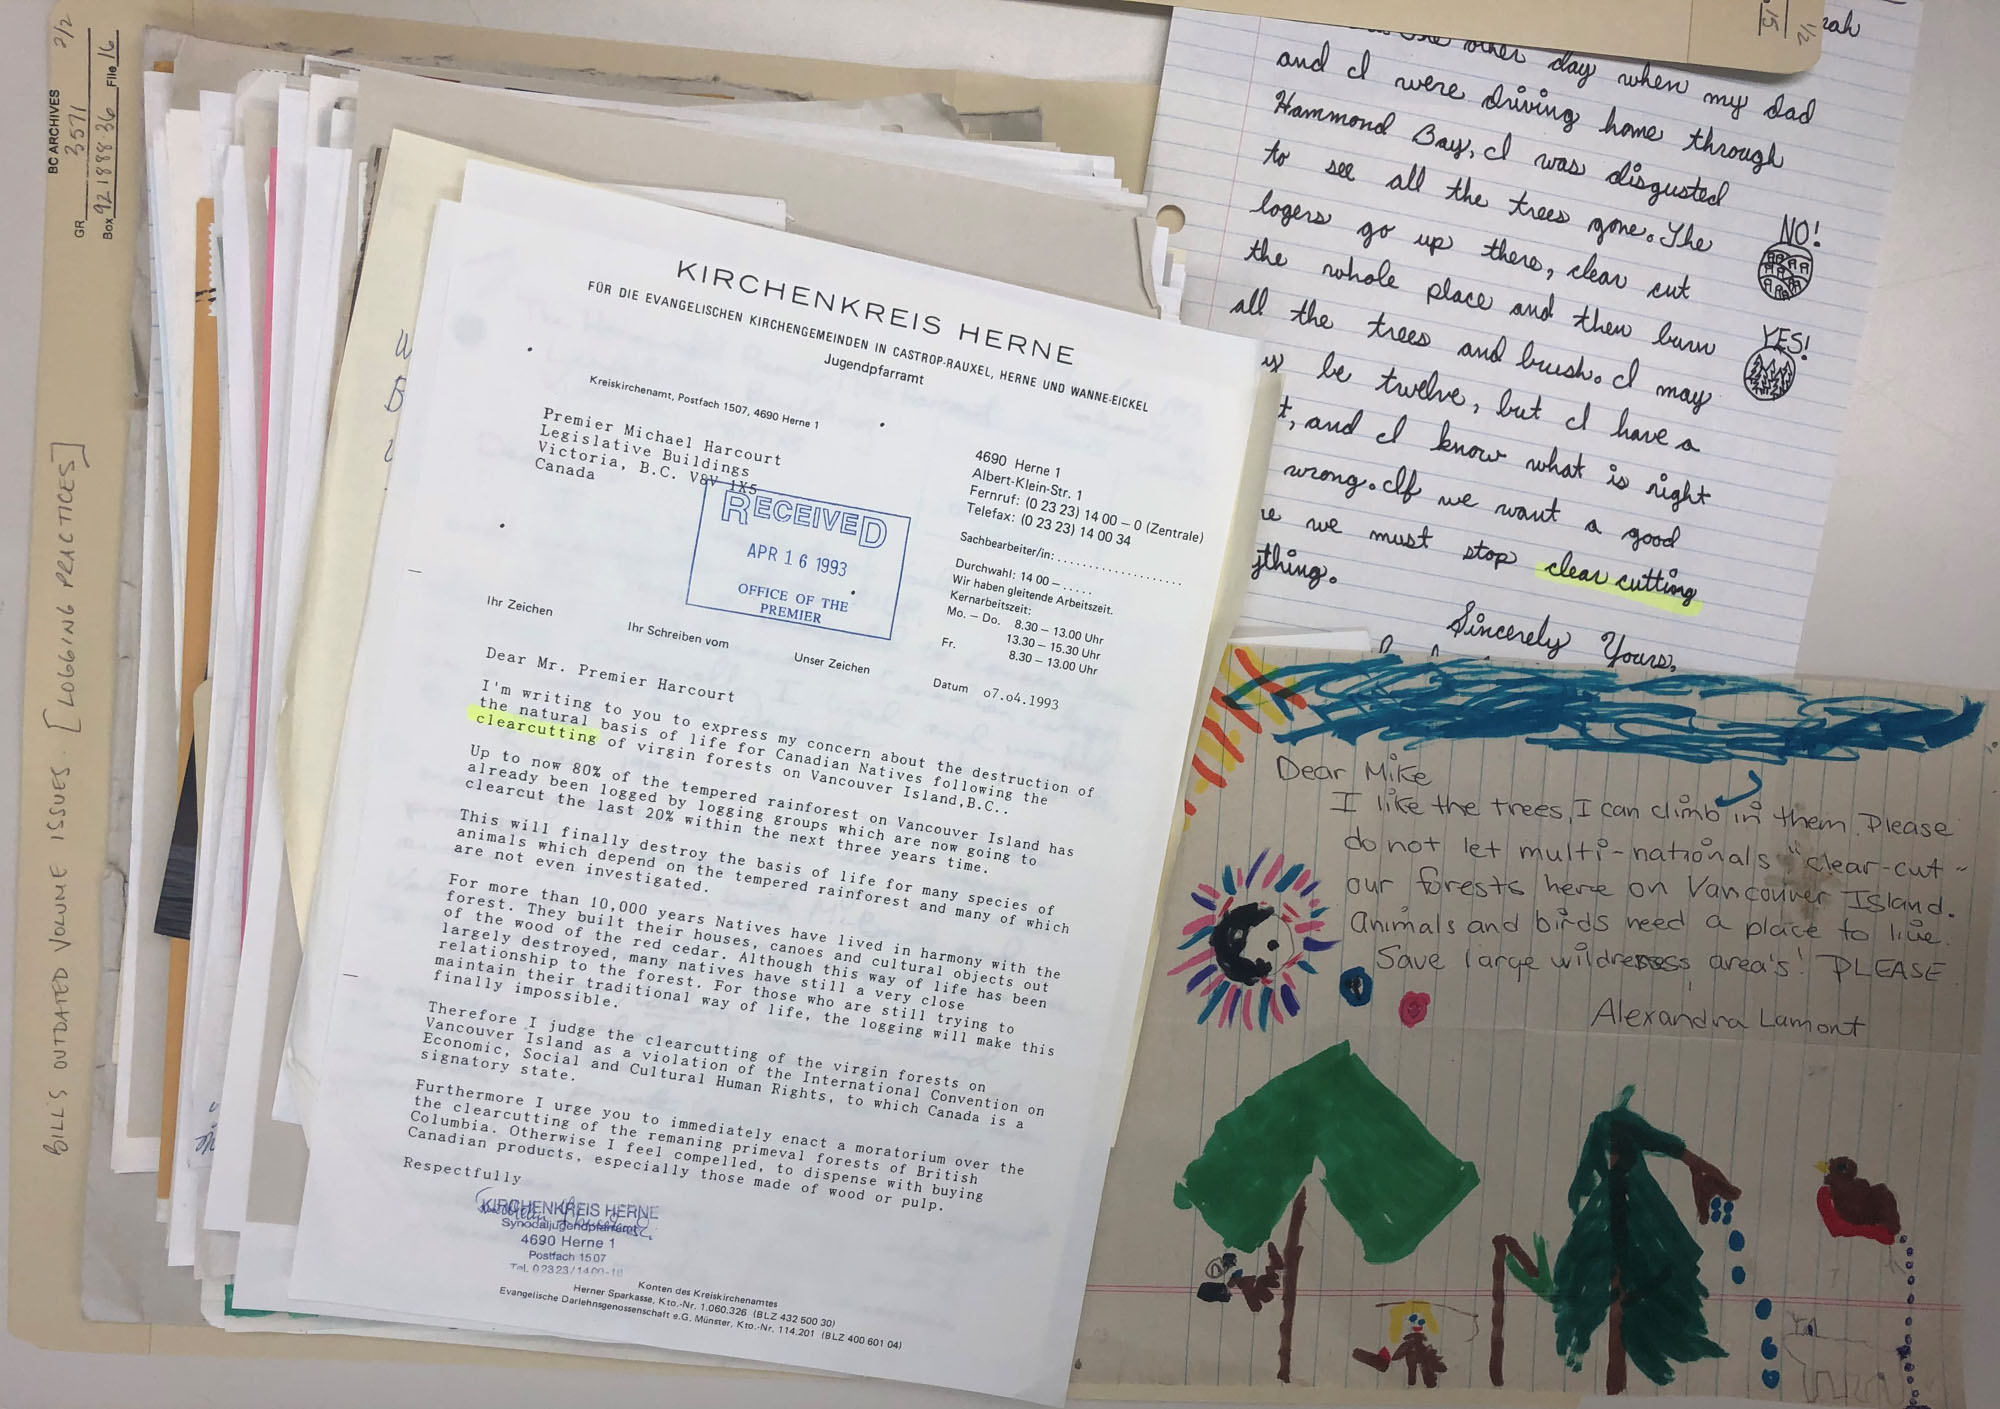 BC ARCHIVES 2/2
GR 3571
Box 921888 36 File 16
BILL'S OUTDATED VOLUME ISSUES. [LOGGING PRACTICES]
KIRCHENKREIS HERNE
FÜR DIE EVANGELISCHEN KIRCHENGEMEINDEN IN CASTROP-RAUXEL, HERNE UND WANNE-EICKEL
Jugendpfarramt
Kreiskirchenamt, Postfach 1507, 4690 Herne 1
Premier Michael Harcourt
Legislative Buildings
Victoria, B.C. V8V 1X5
Canada
RECEIVED
APR 16 1993
OFFICE OF THE
PREMIER
4690 Herne 1
Albert-Klein-Str. 1
Fernruf: (0 23 23) 14 00 – 0 (Zentrale)
Telefax: (0 23 23) 14 00 34
Sachbearbeiter/in: ........................
Durchwahl: 14 00 – .....
Wir haben gleitende Arbeitszeit.
Kernarbeitszeit:
Mo. – Do. 8.30 – 13.00 Uhr
13.30 – 15.30 Uhr
Fr. 8.30 – 13.00 Uhr
Ihr Zeichen Ihr Schreiben vom Unser Zeichen Datum o7.o4.1993
Dear Mr. Premier Harcourt
I'm writing to you to express my concern about the destruction of
the natural basis of life for Canadian Natives following the
clearcutting of virgin forests on Vancouver Island,B.C..
Up to now 80% of the tempered rainforest on Vancouver Island has
already been logged by logging groups which are now going to
clearcut the last 20% within the next three years time.
This will finally destroy the basis of life for many species of
animals which depend on the tempered rainforest and many of which
are not even investigated.
For more than 10,000 years Natives have lived in harmony with the
forest. They built their houses, canoes and cultural objects out
of the wood of the red cedar. Although this way of life has been
largely destroyed, many natives have still a very close
relationship to the forest. For those who are still trying to
maintain their traditional way of life, the logging will make this
finally impossible.
Therefore I judge the clearcutting of the virgin forests on
Vancouver Island as a violation of the International Convention on
Economic, Social and Cultural Human Rights, to which Canada is a
signatory state.
Furthermore I urge you to immediately enact a moratorium over the
the clearcutting of the remaning primeval forests of British
Columbia. Otherwise I feel compelled, to dispense with buying
Canadian products, especially those made of wood or pulp.
Respectfully
KIRCHENKREIS HERNE
Synodaljugendpfarramt
4690 Herne 1
Postfach 1507
Tel. 02323/1400-18
Konten des Kreiskirchenamtes
Herner Sparkasse, Kto.-Nr. 1.060.326 (BLZ 432 500 30)
Evangelische Darlehnsgenossenschaft e.G. Münster, Kto.-Nr. 114.201 (BLZ 400 601 04)
15
1/2
the other day when my dad
and I were driving home through
Hammond Bay, I was disgusted
to see all the trees gone. The
logers go up there, clear cut
the whole place and then burn
all the trees and brush. I may
be twelve, but I have a
, and I know what is right
wrong. If we want a good
we must stop clear cutting
Sincerely Yours,
NO!
YES!
Dear Mike
I like the trees, I can climb in them. Please
do not let multi-nationals "clear-cut"
our forests here on Vancouver Island.
Animals and birds need a place to live.
Save large wilderness area's! PLEASE
Alexandra Lamont